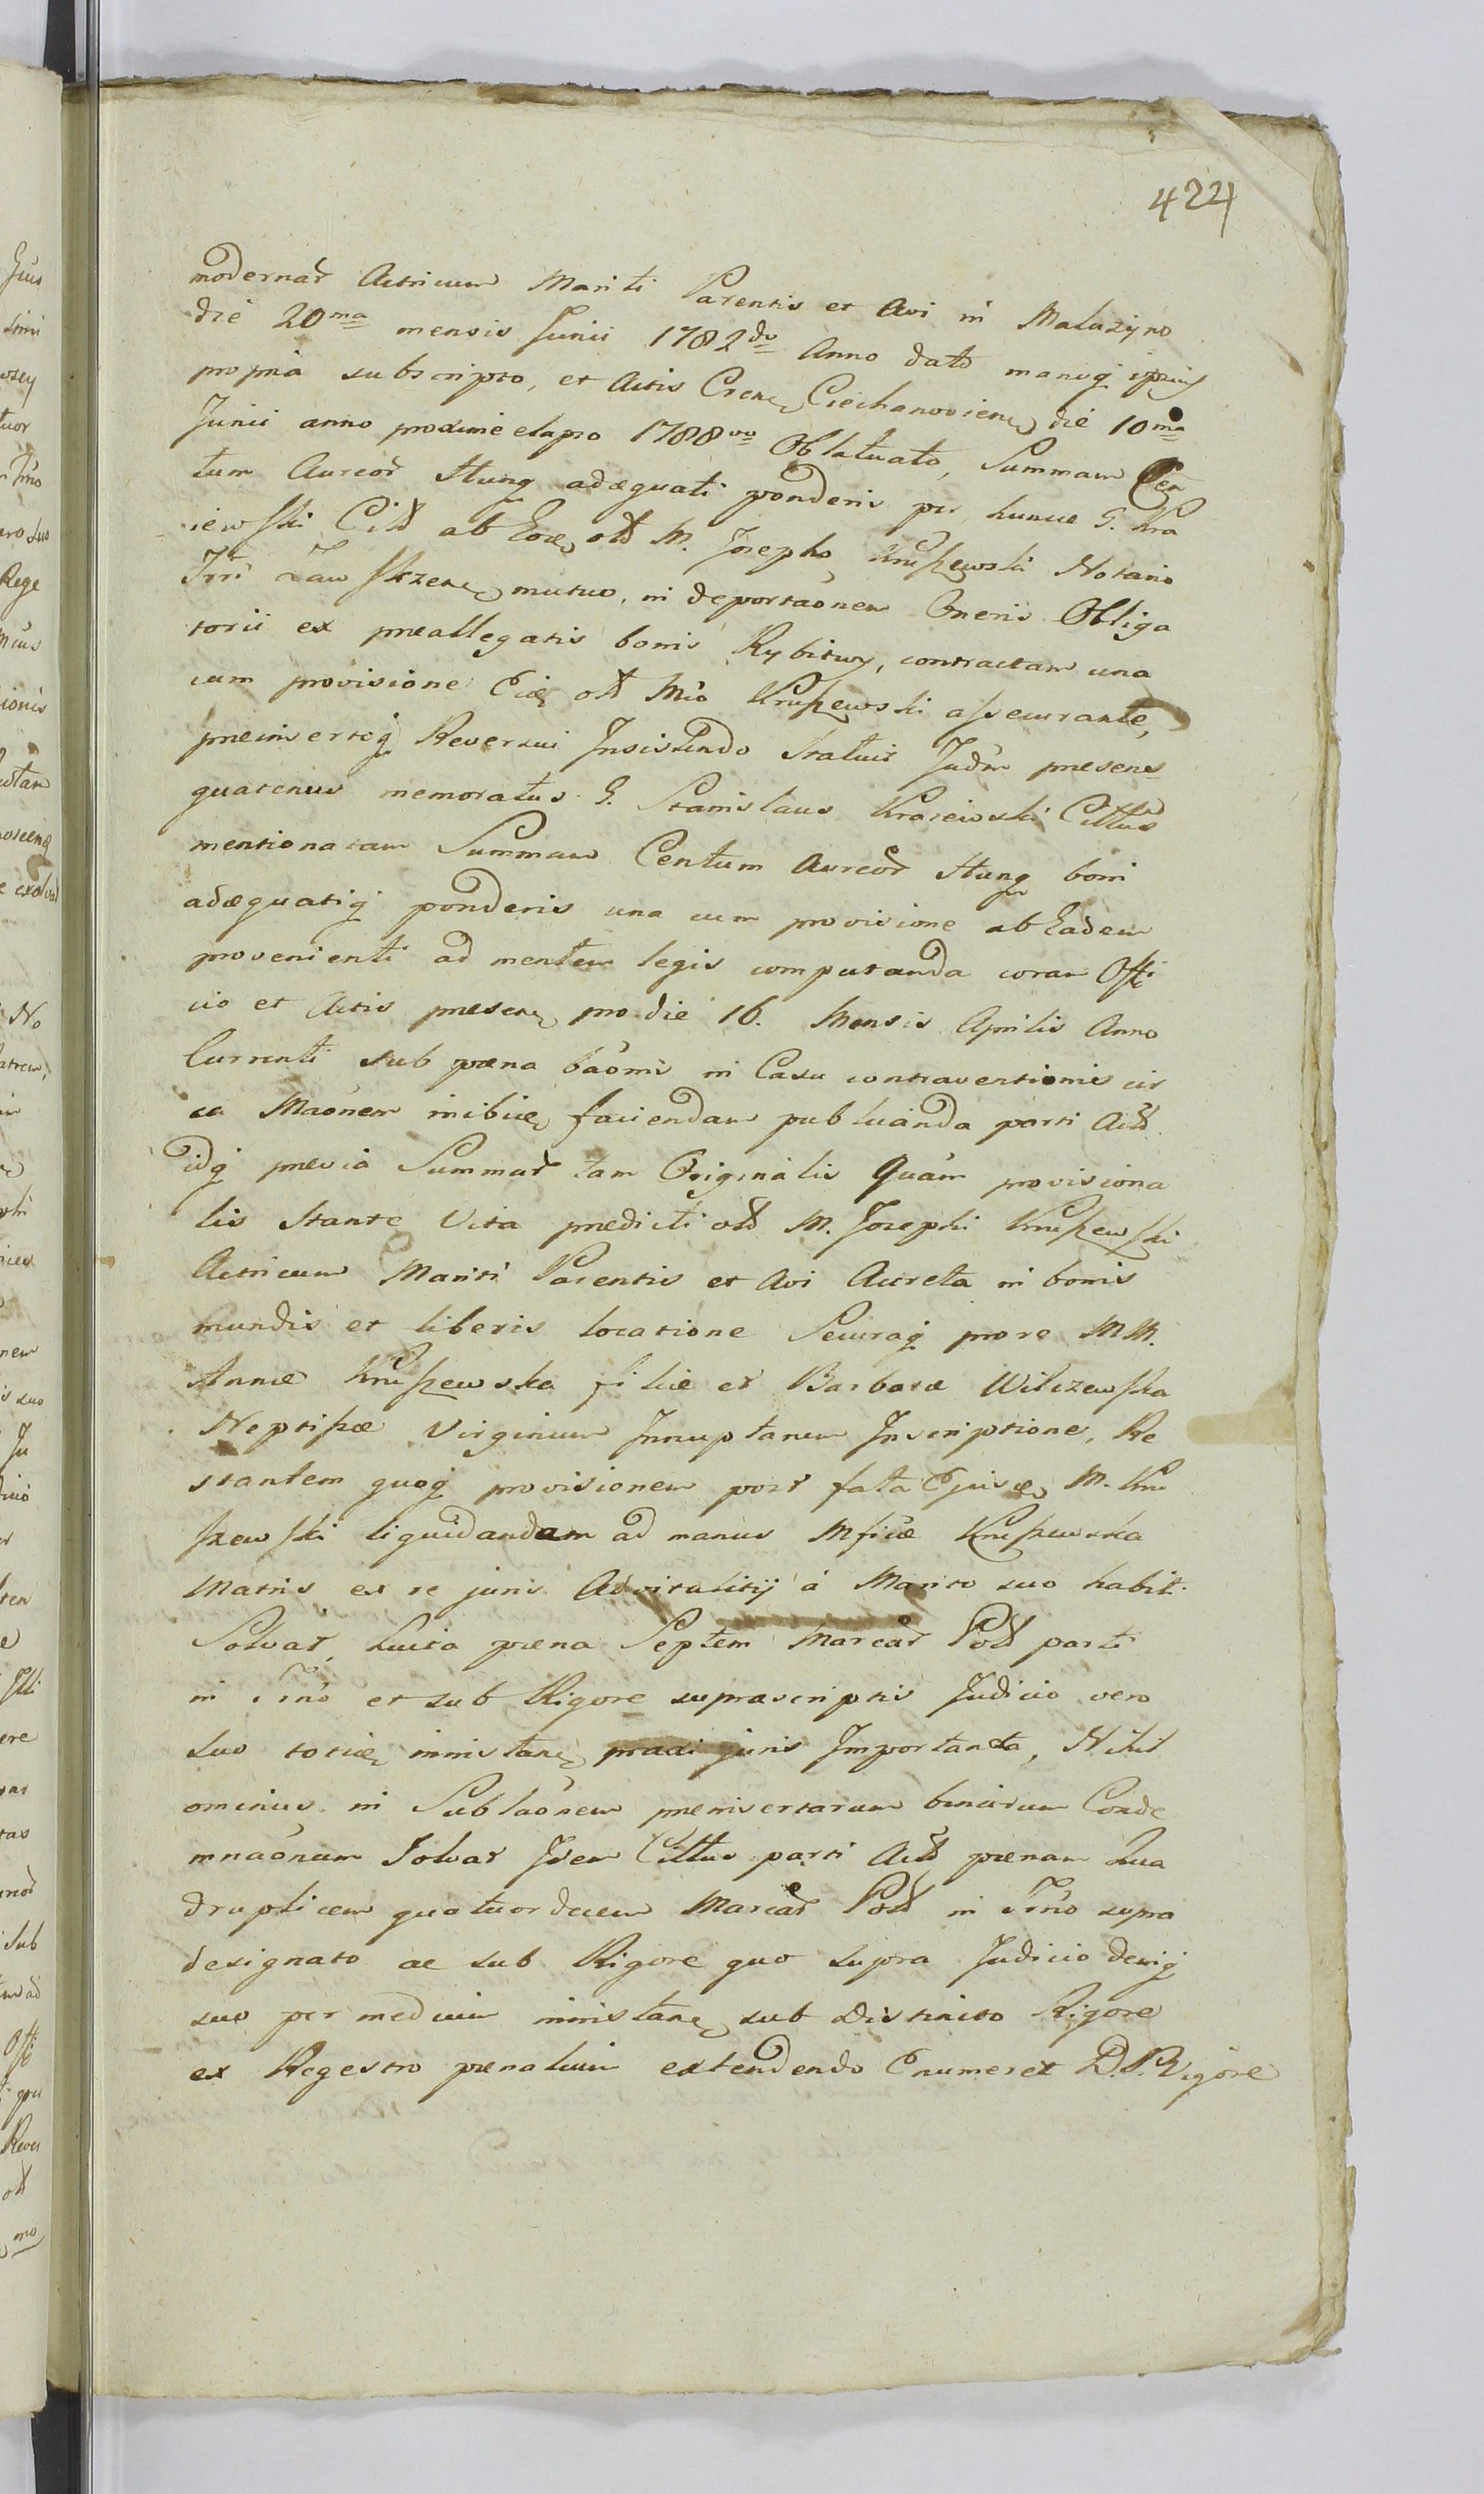 424
modernar Actricum Mariti Parentis et Avi in Maluzyno
die 20ma mensis Junii 1782do Anno dato manuq ipsius
propria subscripto, et Actis Crens Ciechanoviens die 10ma
Junii anno proxime elapso 1788vo Oblatuato, Summam Cen
tum Aureor Hung adæquati ponderis per hunce G. Kra
iewski Citt ab Eone old M. Josepho Kruszewski Notario
Trri Zawskrzens mutuo, in deportaonem Oneris Obliga
torii ex preallegatis bonis Rybitwy, contractam una
cum provisione Eid old Mco Kruszewski assecurante,
preinsertoq Reversui Insistendo Statuit Judm presens
quatenus memoratus G. Stanislaus Kraiewski Cittus
mentionatam Summam Centum Aureor Hung boni
adæquatiq ponderis una cum provisione ab Eadem
provenienti ad mentem legis computanda coram Offi
cio et Actis presens pro die 16. Mensis Aprilis Anno
Currenti sub pœna baomis in Casu contraventionis cir
ca Maonem inibiue faciendam publicanda parti Act
idq previa Summar tam Originalis Quam provisiona
lis Stante Vita predicti old M. Josephi Kruszewski
Actricum Mariti Parentis et Avi Acreta in bonis
mundis et liberis locatione Securaq pro re MM.
Annæ Kruszewska filiæ et Barbaræ Wilczewska
Neptissæ Virginum Innuptarum Inscriptione, Re
stantem quoq provisionem post fata Ejusd M. Kru
szewski liquidandam ad manus Mficæ Kruszewska
Matris ex re juris Advitalitij á Marito suo habit.
Solvat, Luita pœna Septem Marcar Pol parti
in Trno et sub Rigore suprascriptis Judicio vero
suo toties ministans praxi juris Importanta, Nihil
ominus in Sublaonem preinsertarum binarum Conde
mnaonum Solvat Idem Cittus parti Act pœnam Qua
druplicem quatuordecem Marcar Pol in Trno supra
designato ac sub Rigore quo supra Judicio deniq
suo per medium ministans sub Districto Rigore
ex Regestro pœnalium extendendo Enumeret D. P. Vigore